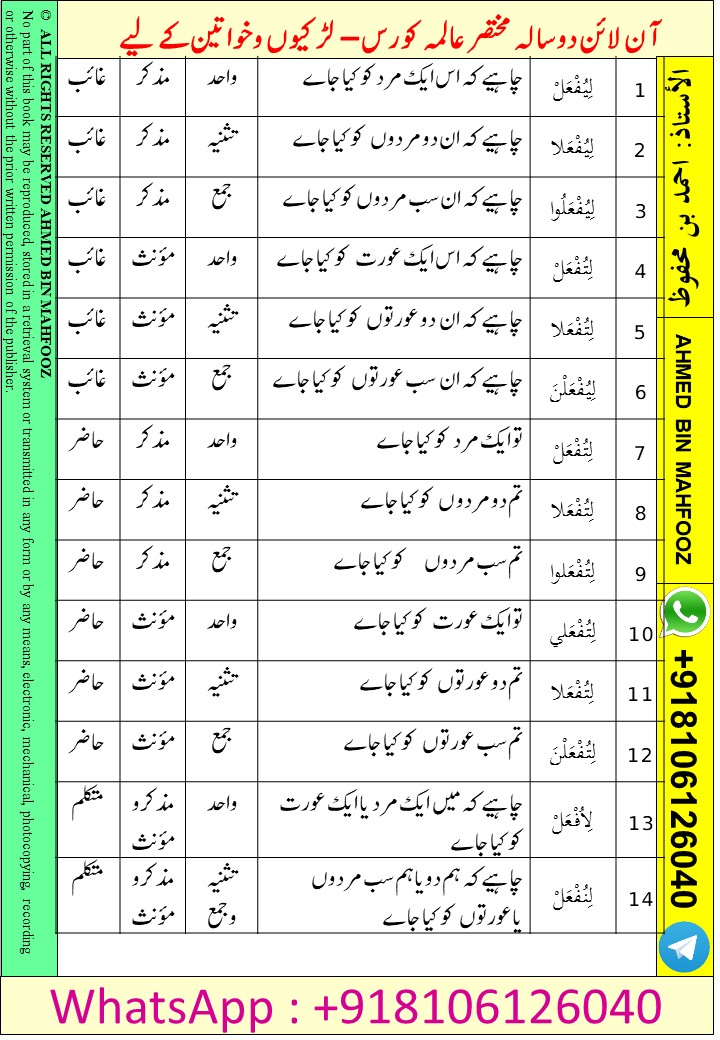 آن لائن دوسالہ مختصر عالمہ کورس – لڑکیوں وخواتین کے لیے
1 لِيُفْعَلْ چاہیے کہ اس ایک مرد کو کیا جاے واحد مذکر غائب
2 لِيُفْعَلا چاہیے کہ ان دو مردوں کو کیا جاے تثنیہ مذکر غائب
3 لِيُفْعَلُوا چاہیے کہ ان سب مردوں کو کیا جاے جمع مذکر غائب
4 لِتُفْعَلْ چاہیے کہ اس ایک عورت کو کیا جاے واحد مؤنث غائب
5 لِتُفْعَلا چاہیے کہ ان دو عورتوں کو کیا جاے تثنیہ مؤنث غائب
6 لِيُفْعَلْنَ چاہیے کہ ان سب عورتوں کو کیا جاے جمع مؤنث غائب
7 لِتُفْعَلْ تو ایک مرد کو کیا جاے واحد مذکر حاضر
8 لِتُفْعَلا تم دو مردوں کو کیا جاے تثنیہ مذکر حاضر
9 لِتُفْعَلوا تم سب مردوں کو کیا جاے جمع مذکر حاضر
10 لِتُفْعَلي تو ایک عورت کو کیا جاے واحد مؤنث حاضر
11 لِتُفْعَلا تم دو عورتوں کو کیا جاے تثنیہ مؤنث حاضر
12 لِتُفْعَلْنَ تم سب عورتوں کو کیا جاے جمع مؤنث حاضر
13 لِأُفْعَلْ چاہیے کہ میں ایک مرد یا ایک عورت واحد مذکر و متکلم
کو کیا جاے مؤنث
14 لِنُفْعَلْ چاہیے کہ ہم دو یا ہم سب مردوں تثنیہ مذکر و متکلم
یا عورتوں کو کیا جاے وجمع مؤنث
الأستاذ: احمد بن محفوظ
AHMED BIN MAHFOOZ
+918106126040
© ALL RIGHTS RESERVED AHMED BIN MAHFOOZ
No part of this book may be reproduced, stored in a retrieval system or transmitted in any form or by any means, electronic, mechanical, photocopying, recording
or otherwise without the prior written permission of the publisher.
WhatsApp : +918106126040